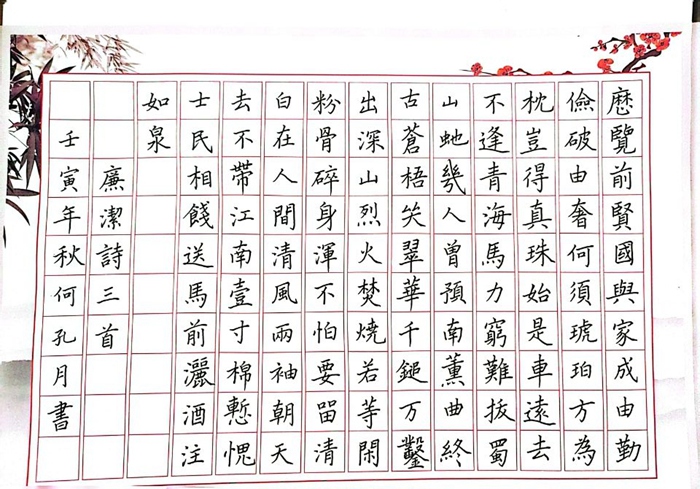 歷覽前賢國與家成由勤
儉破由奢何須琥珀方為
枕豈得真珠始是車遠去
不逢青海馬力窮難拔蜀
山虵幾人曾預南薰曲終
古蒼梧哭翠華千鎚万鑿
出深山烈火焚燒若等閑
粉骨碎身渾不怕要留清
白在人間清風兩袖朝天
去不帶江南壹寸棉慙愧
士民相餞送馬前灑酒注
如泉
廉潔詩三首
壬寅年秋何孔月書